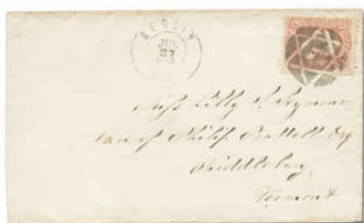 BERLIN
27
Miss Lilly S. Seymour
Care of Philip Battell Esq
Middlebury
Vermont